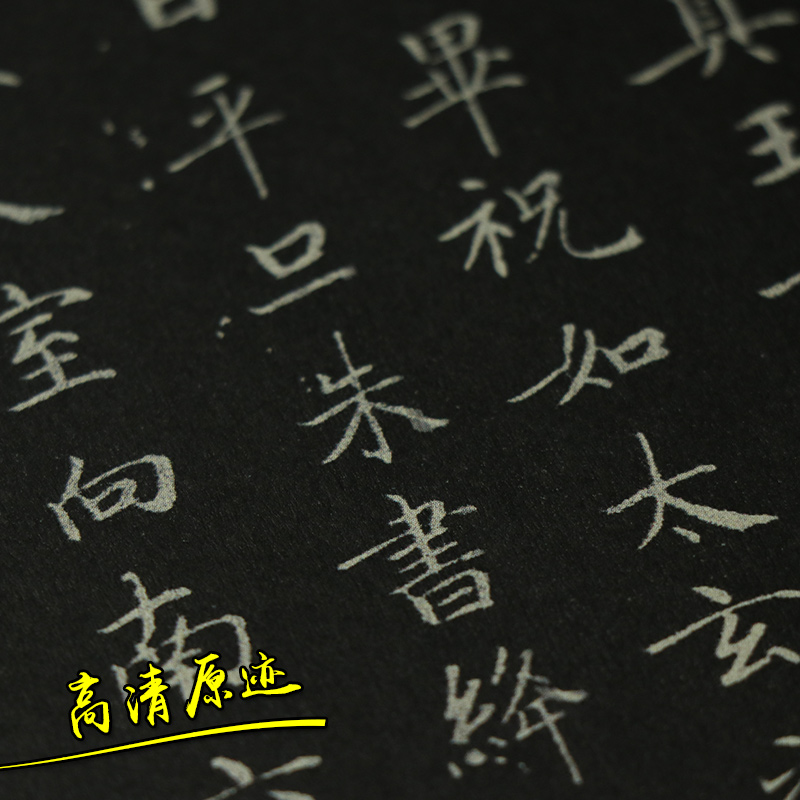 畢祝如太玄
平旦朱書絳
室向南
高清原迹